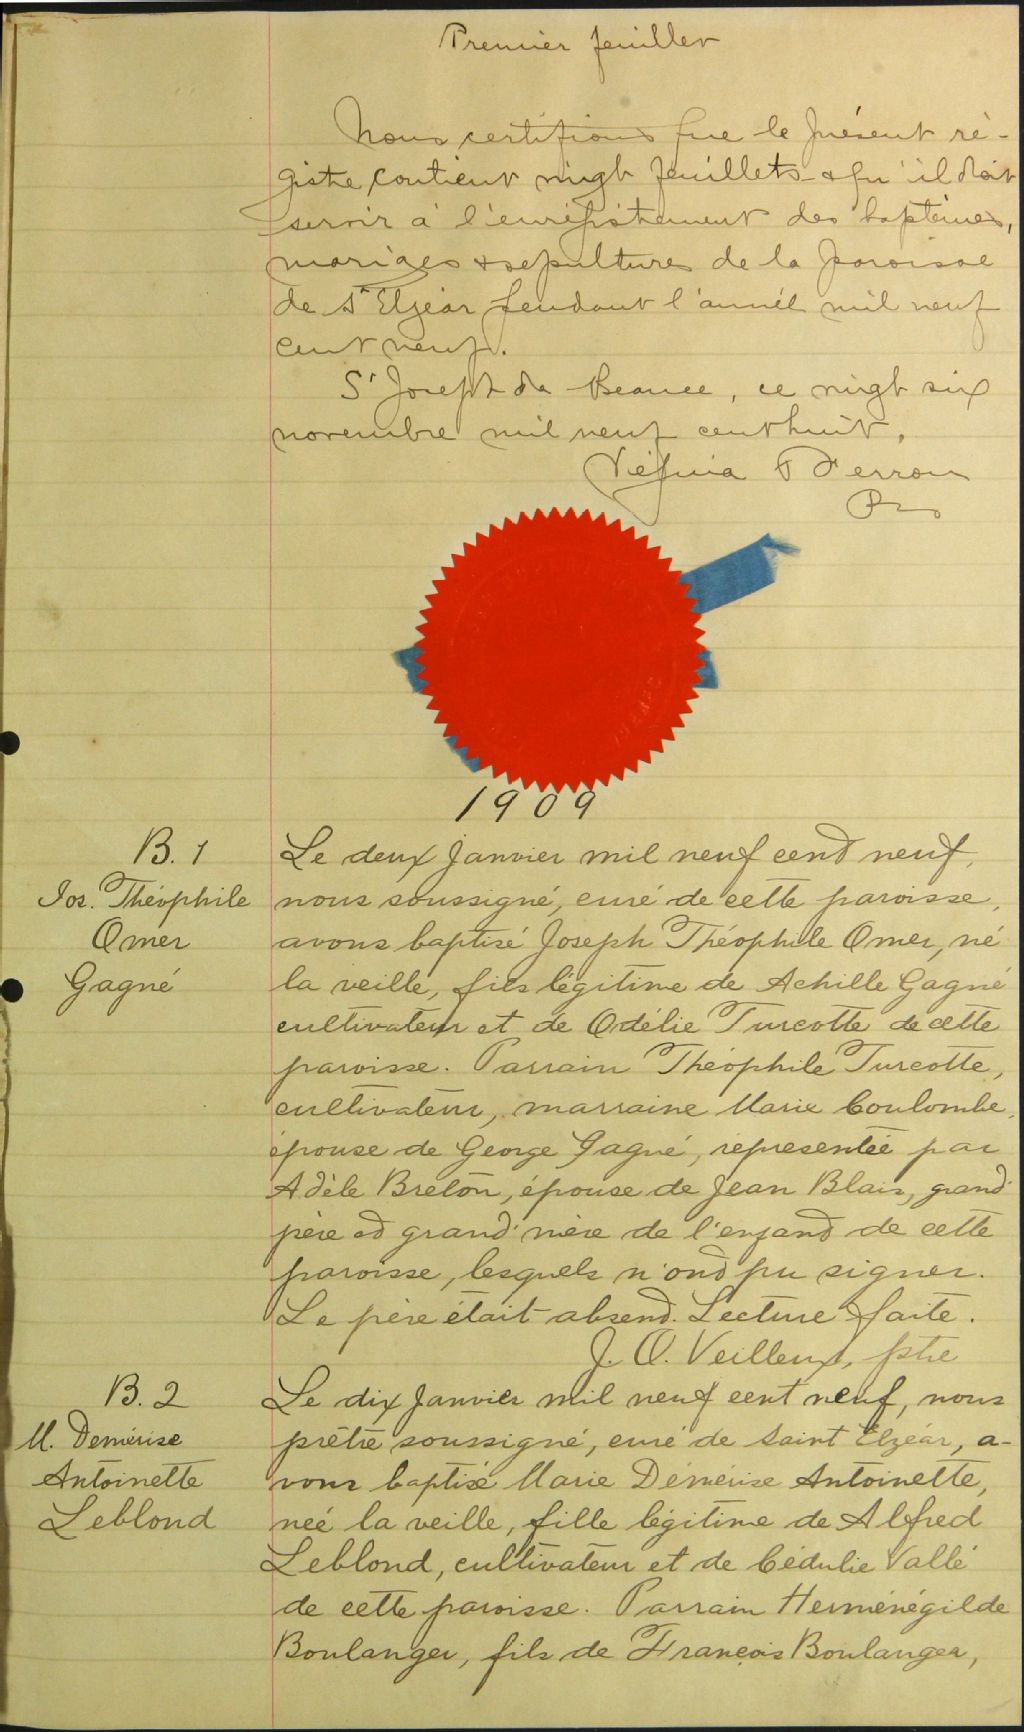 Premier feuillet
Nous certifions que le présent ré-
gistre contient vingt feuillets & qu'il doit
servir à l'enrégistrement des baptêmes,
mariages & sepultures de la paroisse
de St Elzéar pendant l'année mil neuf
cent neuf.
St Joseph de Beauce, ce vingt six
novembre mil neuf cent huit.
Vézina & Perron
1909
B. 1
Jos. Théophile
Omer
Gagné
Le deux Janvier mil neuf cent neuf,
nous soussigné, curé de cette paroisse,
avons baptisé Joseph Théophile Omer, né
la veille, fils légitime de Achille Gagné
cultivateur et de Odélie Turcotte de cette
paroisse. Parrain Théophile Turcotte,
cultivateur, marraine Marie Coulombe,
épouse de George Gagné, representée par
Adèle Breton, épouse de Jean Blais, grand
père et grand'mère de l'enfant de cette
paroisse, lesquels n'ont pu signer.
Le père était absent. Lecture faite.
J. O. Veilleux, ptre
B. 2
M. Demérise
Antoinette
Leblond
Le dix Janvier mil neuf cent neuf, nous
prêtre soussigné, curé de Saint Elzéar, a-
vons baptisé Marie Démérise Antoinette,
née la veille, fille légitime de Alfred
Leblond, cultivateur et de Cédulie Vallé
de cette paroisse. Parrain Herménégilde
Boulanger, fils de François Boulanger,